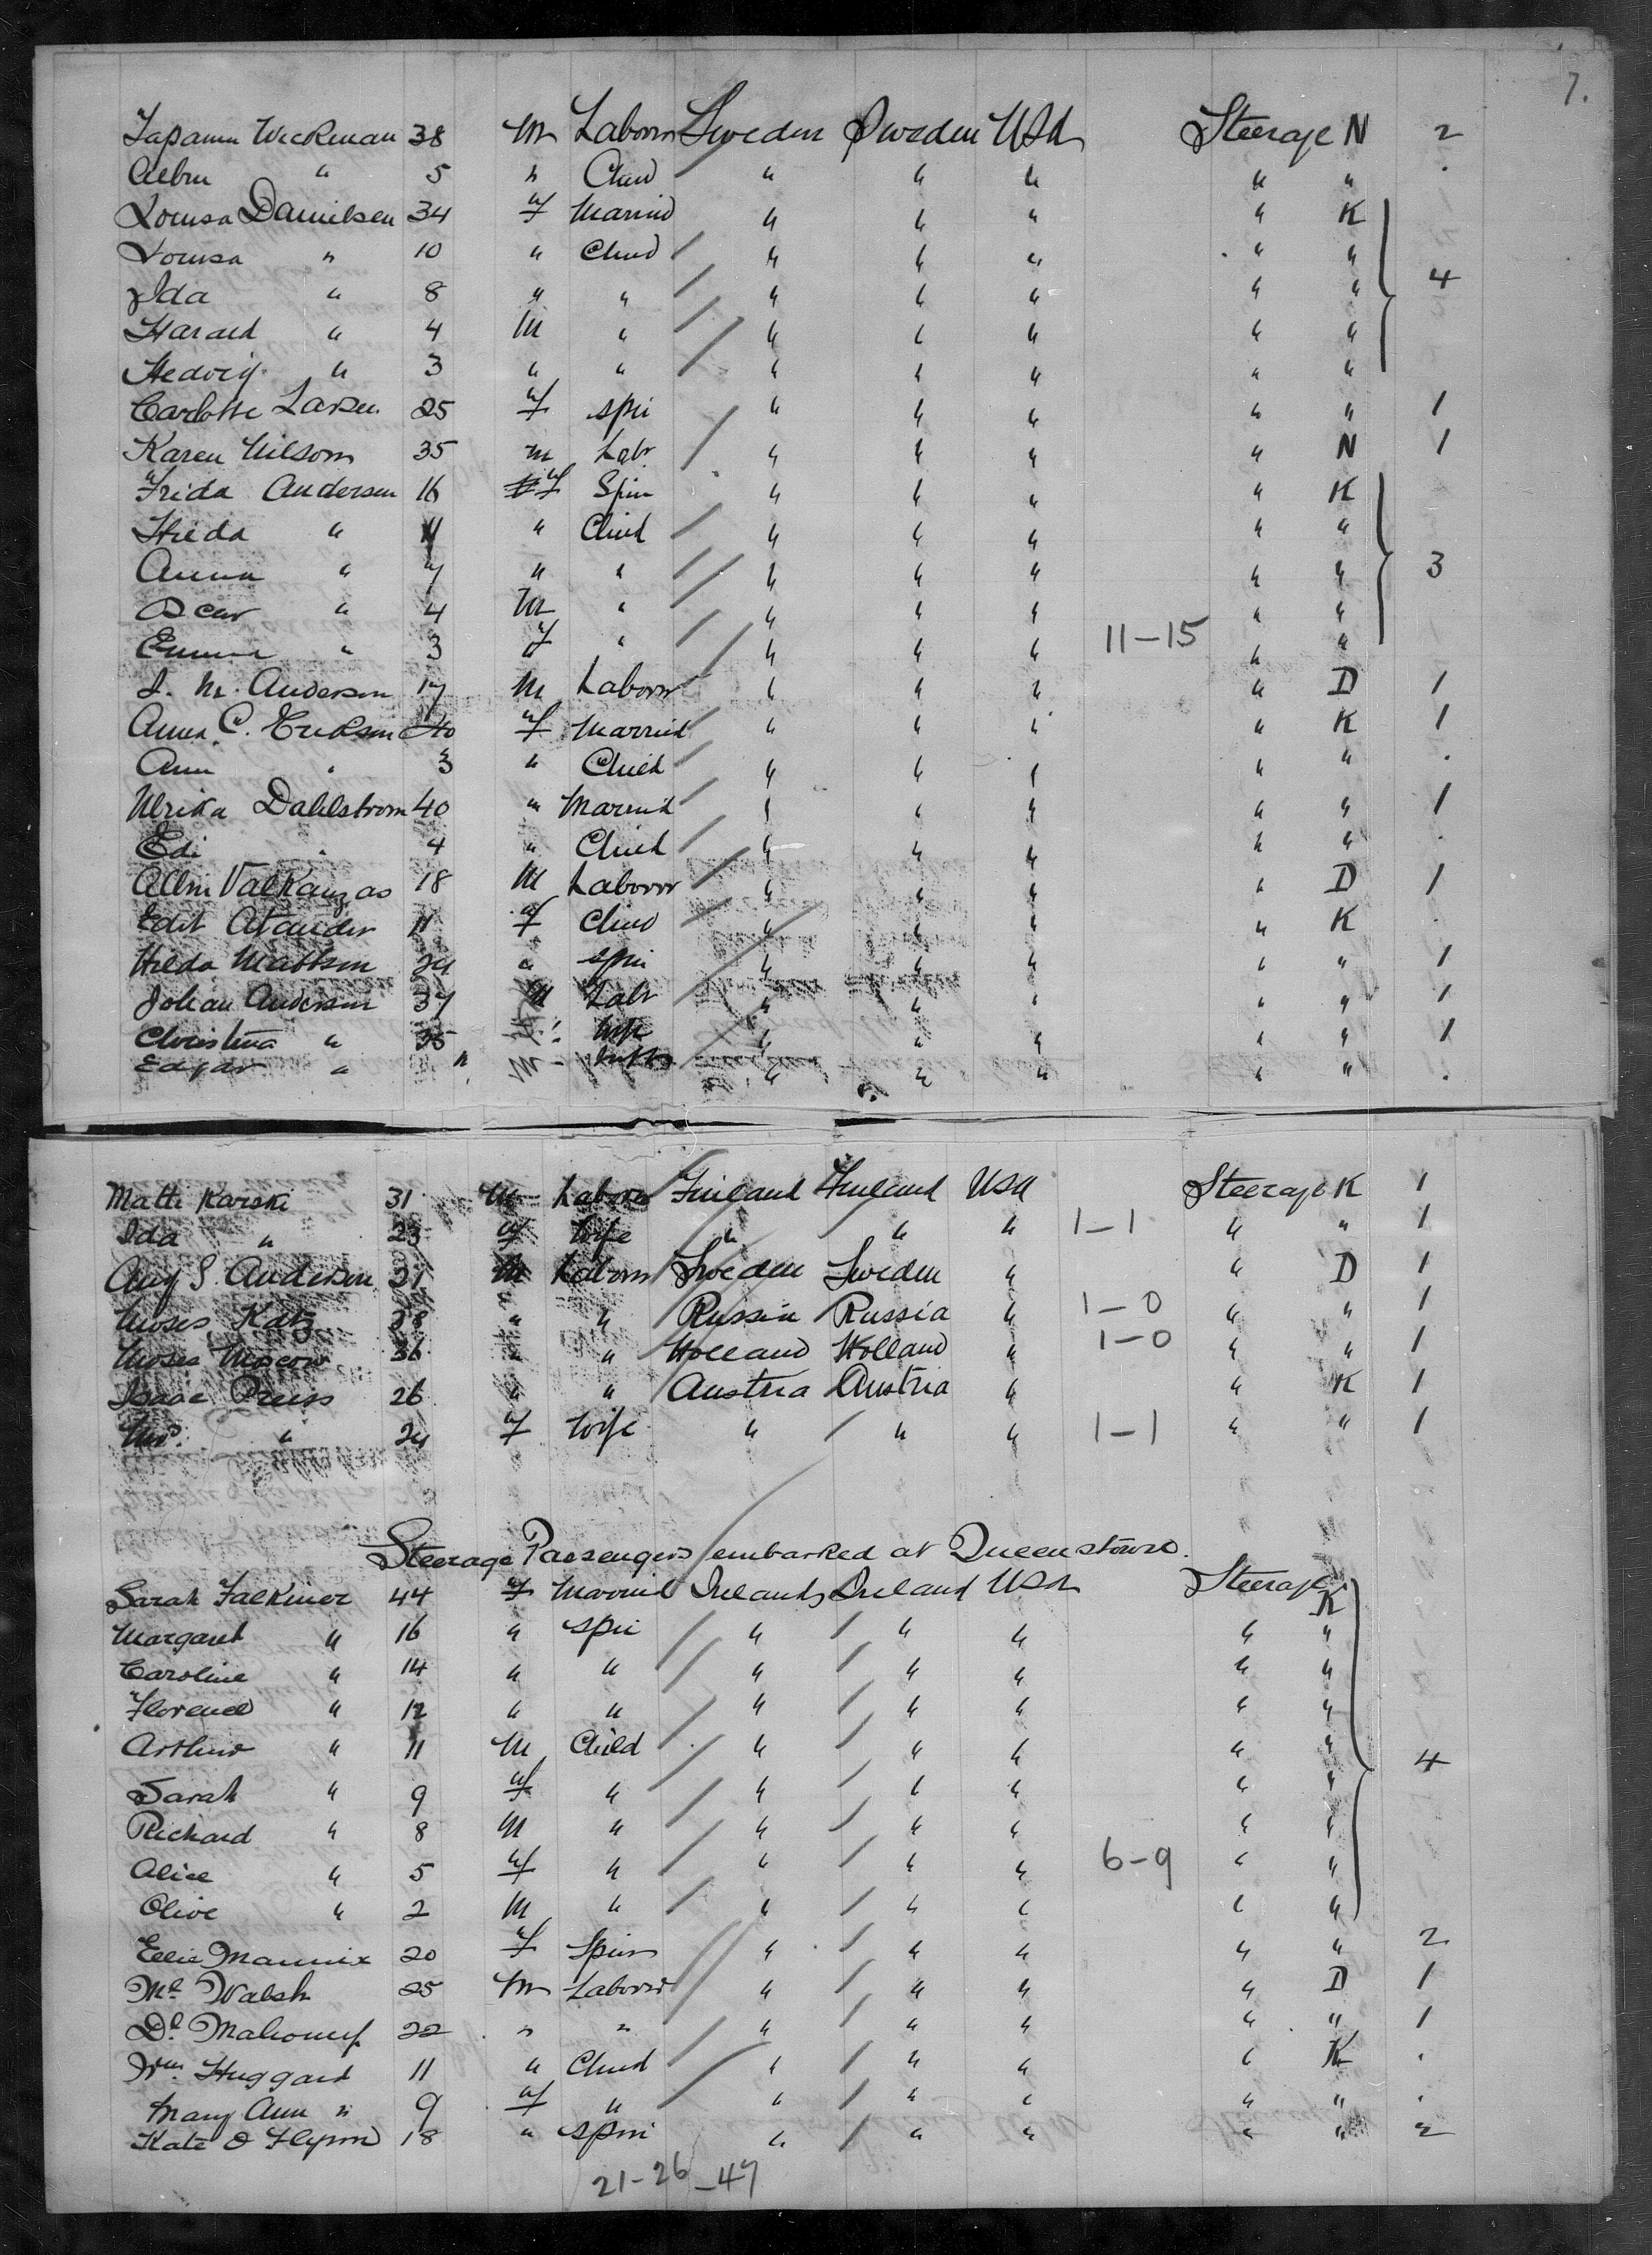 7.
Wickman 38 M Laborer Sweden Sweden USA Steerage N 2
Albin " 5 " Child " " " " " .
Lovisa Danielsen 34 f Married " " " " K
Lovisa " 10 " Child " " " " "
Ida " 8 " " " " " " " 4
Harald " 4 M " " " " " "
Hedvig " 3 " " " " " " "
Carlotte Larsen 25 f spin " " " " " 1
Karen Nilson 35 m Labr " " " " N 1
Frida Andersen 16 f Spin " " " " K
Hilda " 11 " Child " " " " "
Anna " 7 " " " " " " " 3
Oscar " 4 M " " " " " "
Emma " 3 f " " " " 11-15 " "
J. M. Anderson 17 M Laborer " " " " D 1
Anna C. Erikson 40 f Married " " " " K 1
Ann " 3 " Child " " " " " .
Ulrika Dahlstrom 40 " Married " " " " " 1
Edi " 4 " Child " " " " " .
Albin 18 M Laborer " " " " D 1
Edit 11 f Child " " " " K .
Hilda Mattson 24 " spin " " " " " 1
Johan Anderson 37 M Labr " " " " " 1
Christina " 25 f Wife " " " " " 1
Edgar " " M Inft " " " " " .
Matti Karski 31 M Laborer Finland Finland USA Steerage K 1
Ida " 23 f Wife " " " 1-1 " " 1
Aug S. Anderson 21 M Laborer Sweden Sweden " " D 1
Moses Katz 28 " " Russia Russia " 1-0 " " 1
Moses Moscow 36 " " Holland Holland " 1-0 " " 1
Isaac Preiss 26 " " Austria Austria " " K 1
Mrs. " 24 f Wife " " " 1-1 " " 1
Steerage Passengers embarked at Queenstown.
Sarah Falkiner 44 f Married Ireland Ireland USA Steerage K
Margaret " 16 " spin " " " " "
Caroline " 14 " " " " " " "
Florence " 12 " " " " " " "
Arthur " 11 M Child " " " " "
Sarah " 9 f " " " " " " 4
Richard " 8 M " " " " " "
Alice " 5 f " " " " 6-9 " "
Olive " 2 M " " " " " "
Ellie Mannix 20 f Spin " " " " " 2
Ml Walsh 25 M Laborer " " " " D 1
Dl Mahony 22 " " " " " " " 1
Wm. Huggard 11 " Child " " " " K .
Mary Ann " 9 f " " " " " " .
Kate O Flynn 18 " spin " " " " " 2
21-26-47